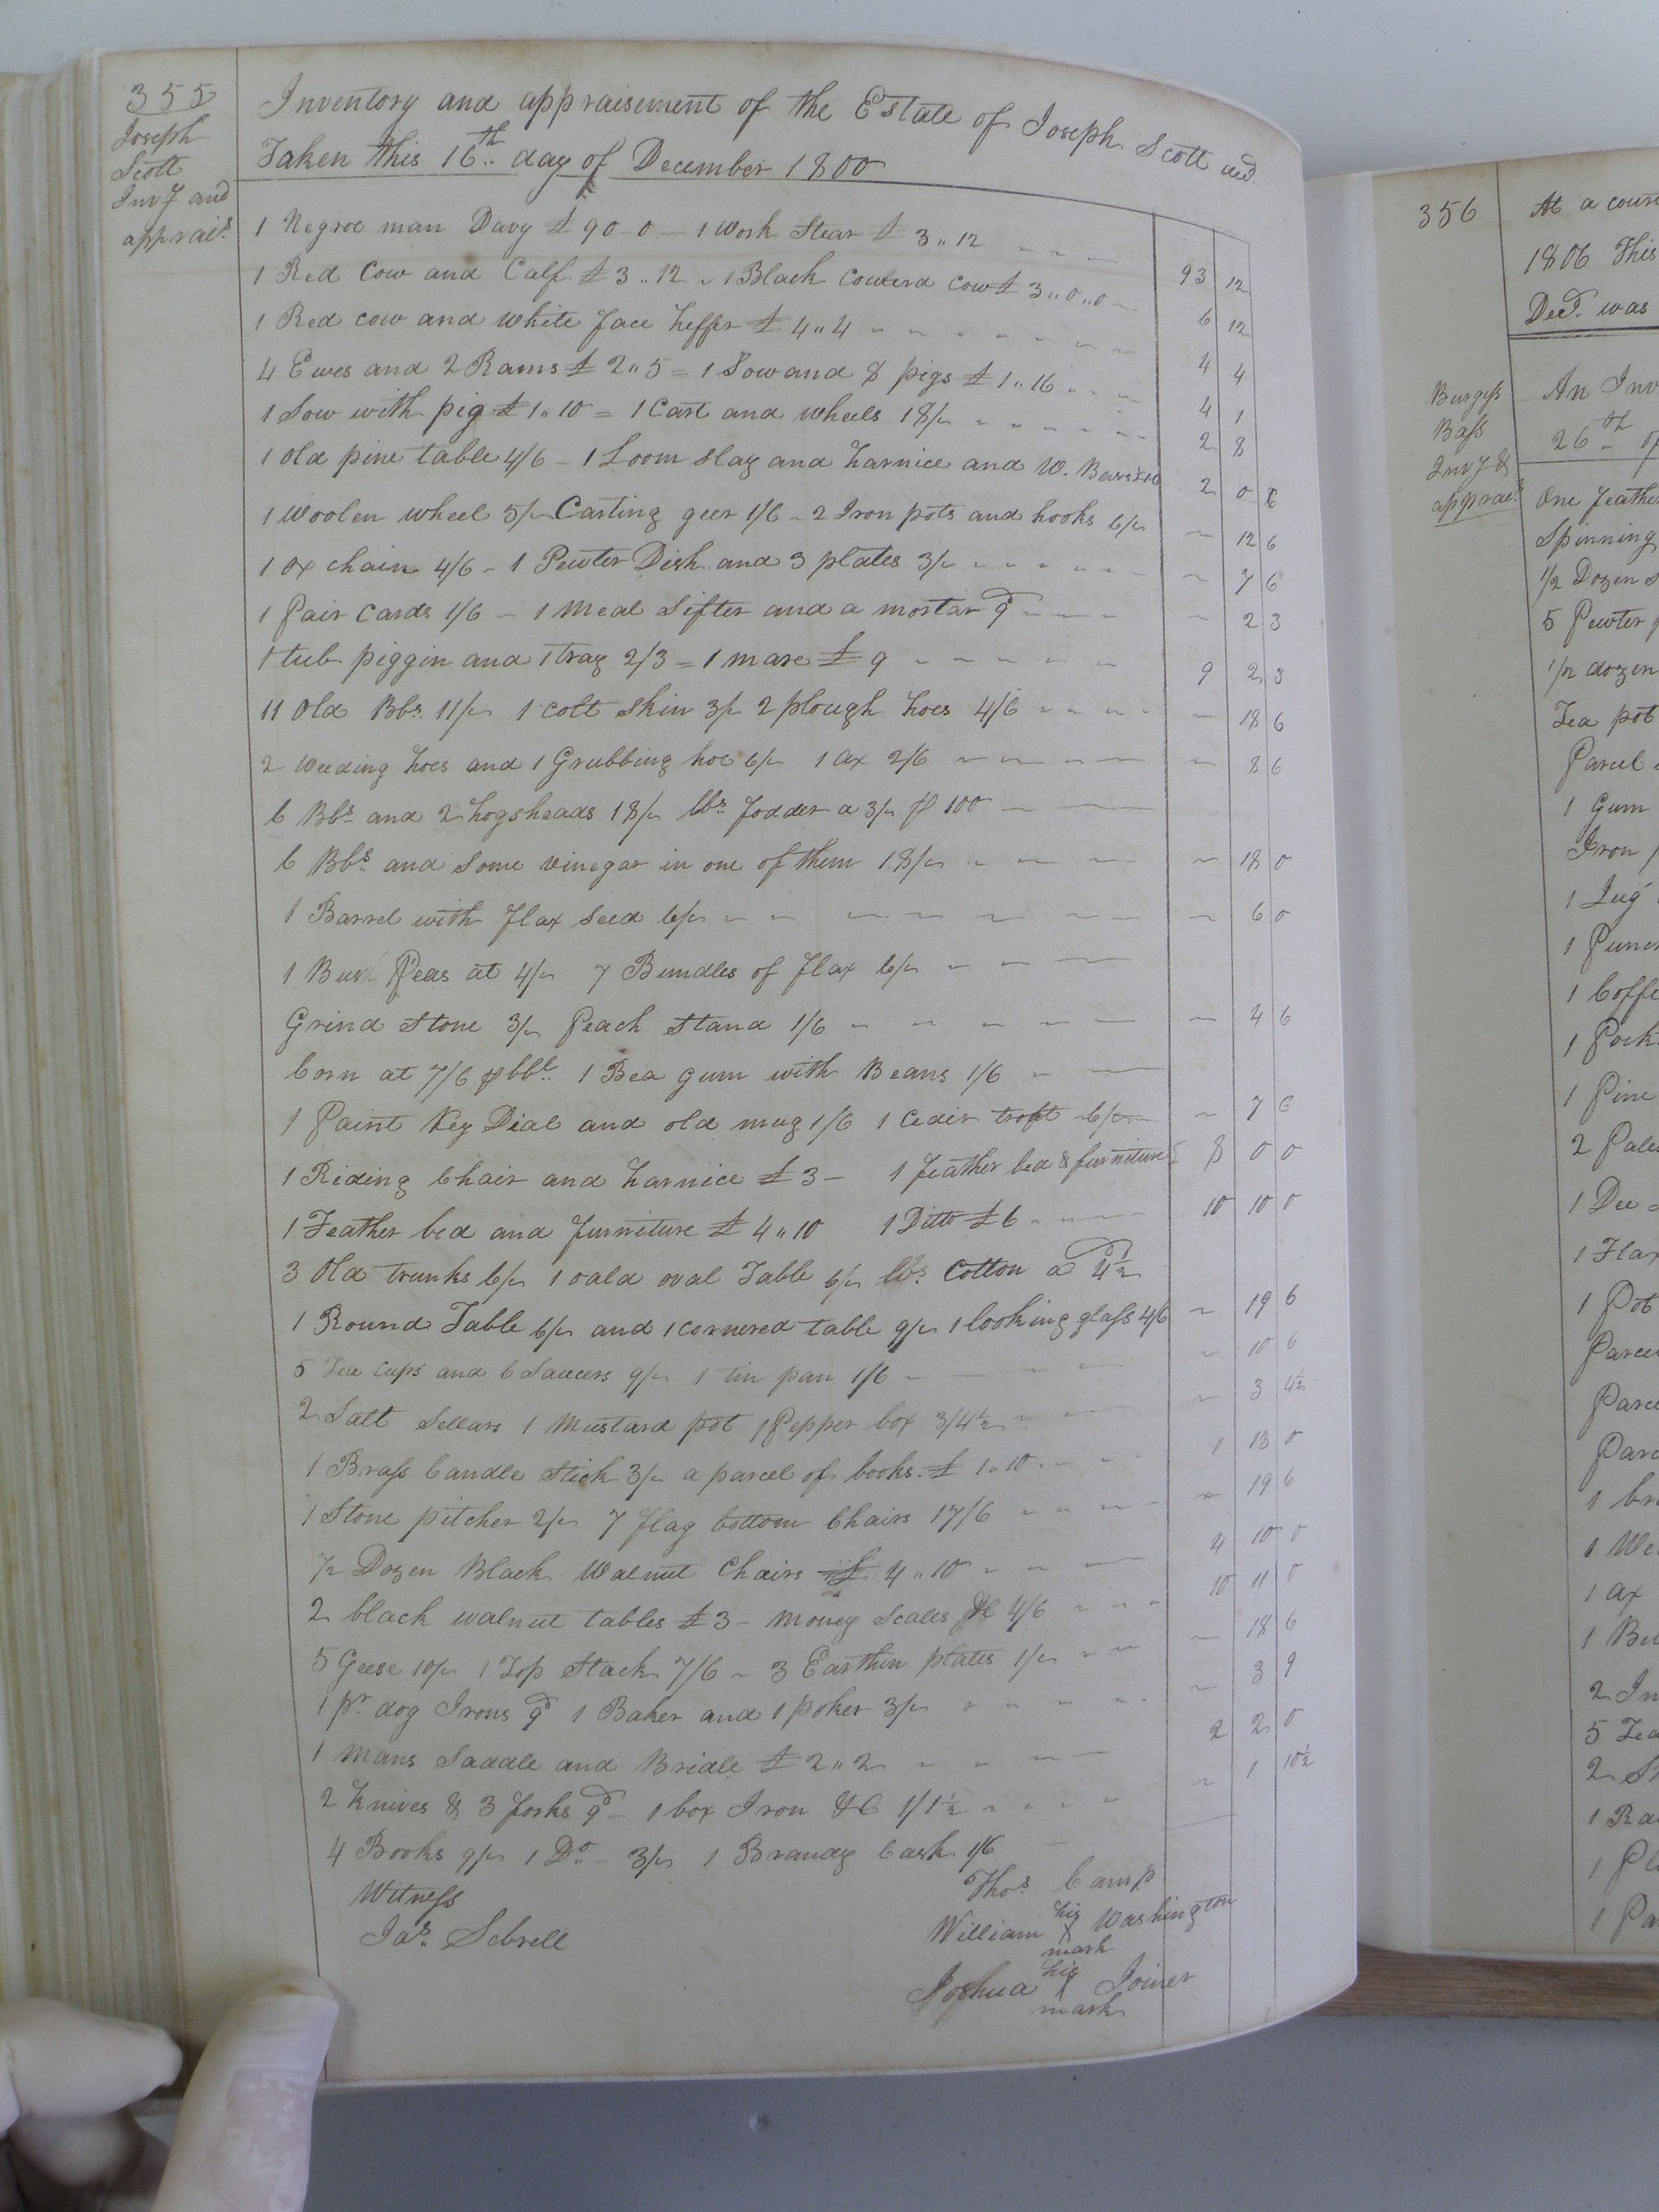 355
Joseph
Scott
Invy and
apprais.
Inventory and appraisement of the Estate of Joseph Scott decd.
Taken this 16th.. day of December 1800
1 Negroe man Davy £ 90-0 - 1 Work Stear £ 3,,12 93 12
1 Red Cow and Calf £ 3..12 1 Black Coulerd Cow £ 3,,0,,0 6 12
1 Red cow and white face heffer £ 4,,4 4 4
4 Ewes and 2 Rams £ 2,,5 = 1 Sow and 8 pigs £ 1,,16 4 1
1 Sow with pig £ 1,,10 = 1 Cart and wheels 18/ 2 8
1 Old pine table 4/6 - 1 Loom Slay and harnice and W. 2 0 6
1 Woolen wheel 5/ Carting geer 1/6 - 2 Iron pots and hooks 6/ 12 6
1 ox chain 4/6 - 1 Pewter Dish and 3 plates 3/ 7 6
1 Pair Cards 1/6 - 1 Meal Sifter and a mostar 9d 2 3
1 tub piggin and 1 tray 2/3 = 1 mare £ 9 9 2 3
11 Old Bbs. 11/ 1 Colt Skin 3/ 2 plough hoes 4/6 18 6
2 Weeding hoes and 1 Grubbing hoe 6/ 1 ax 2/6 8 6
6 Bbs. and 2 hogsheads 18/ lbs. fodder a 3/ ₱ 100
6 Bbs. and Some vinegar in one of them 18/ 18 0
1 Barrel with flax Seed 6/ 6 0
1 Bus Peas at 4/ 7 Bundles of flax 6/
Grind Stone 3/ Peach Stand 1/6 4 6
Corn at 7/6 ₱ bbl.. 1 Bea gum with Beans 1/6
1 Paint Keg Dial and old mug 1/6 1 Cedir troft 6/ 7 6
1 Riding Chair and harnice £ 3 - 1 feather bed & furniture 8 0 0
1 Feather bed and furniture £ 4,,10 1 Ditto £ 6 10 10 0
3 Old trunks 6/ 1 oald oval Table 6/ lbs. Cotton a 4½d
1 Round Table 6/ and 1 cornered table 9/ 1 looking glass 4/6 19 6
5 Tea Cups and 6 Saucers 9/ 1 tin pan 1/6 10 6
2 Salt Sellars 1 Mustard pot 1 Pepper box 3/4½ 3 4½
1 Brass Candle Stick 3/ a parcel of books £ 1,,10 1 13 0
1 Stone pitcher 2/ 7 flag bottom Chairs 17/6 19 6
½ Dozen Black Walnut Chairs £ 4,,10 4 10 0
2 black walnut tables £ 3 - Money Scales &c 4/6 10 11 0
5 Geese 10/ 1 Top Stack 7/6 - 3 Earthen plates 1/ 18 6
1 pr. dog Irons 9d 1 Baker and 1 poker 3/ 3 9
1 Mans Saddle and Bridle £ 2,,2 2 2 0
2 Knives & 3 forks 9d - 1 box Iron &C 1/1½ 1 10½
4 Books 9/ 1 Do.. 3/ 1 Brandy Cask 1/6
Witness
Jas. Sebrell
Thos. Camp
William his mark Washington
Joshua his mark Joiner
356
At a cour
1806 This
Decr. was
Burgess
Bass
Invy &
apprais.
An Inv
26th of
One feathe
Spinning
1/2 Dozen s
5 Pewter p
1/2 dozen
Tea pot
Parcel
1 Gum
Iron p
1 Jug
1 Punch
1 Coffe
1 Pock
1 Pine
2 Pale
1 Dee
1 Flax
1 Pot
Parce
Parce
Parc
1 br
1 We
1 ax
1 Be
2 In
5 Tea
2 S
1 Ra
1 Pl
1 Pa